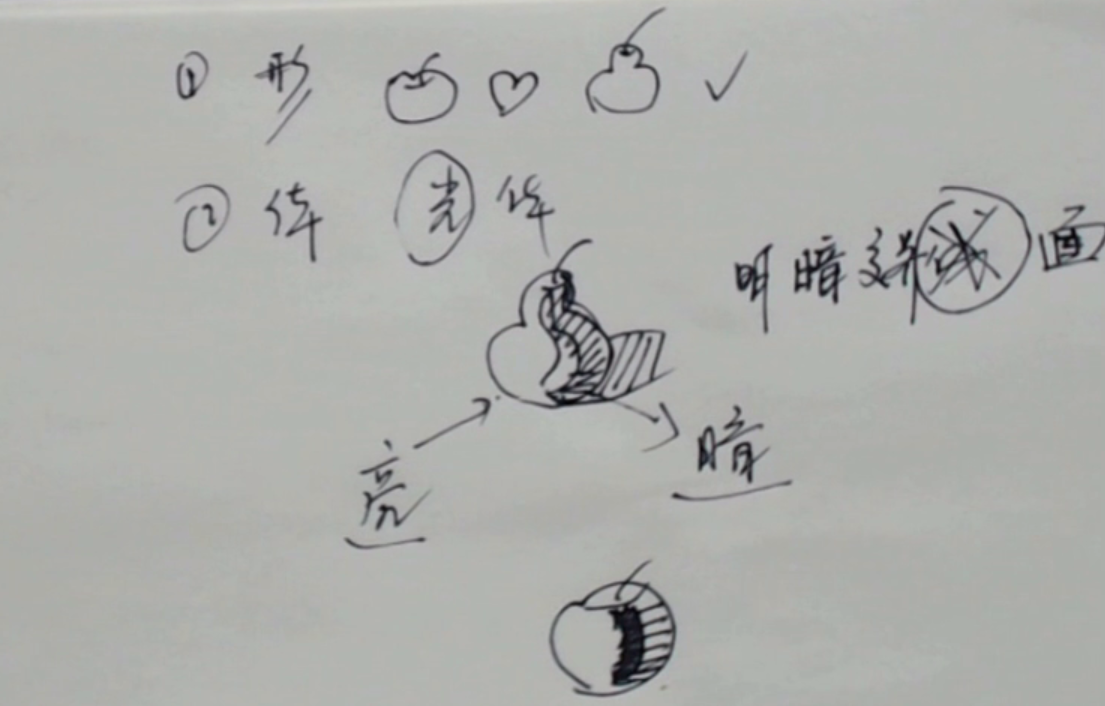 ① 形 ✓
② 体 光 体
明暗交界线面
亮
暗